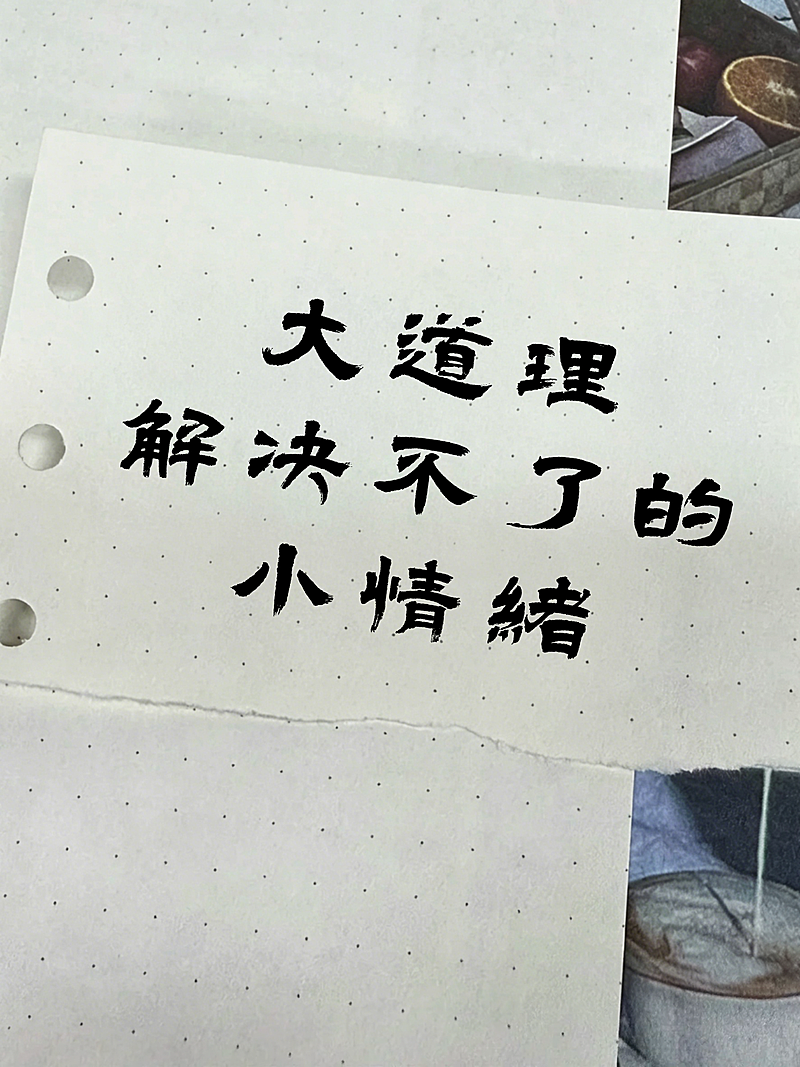 大道理
解决不了的
小情緒